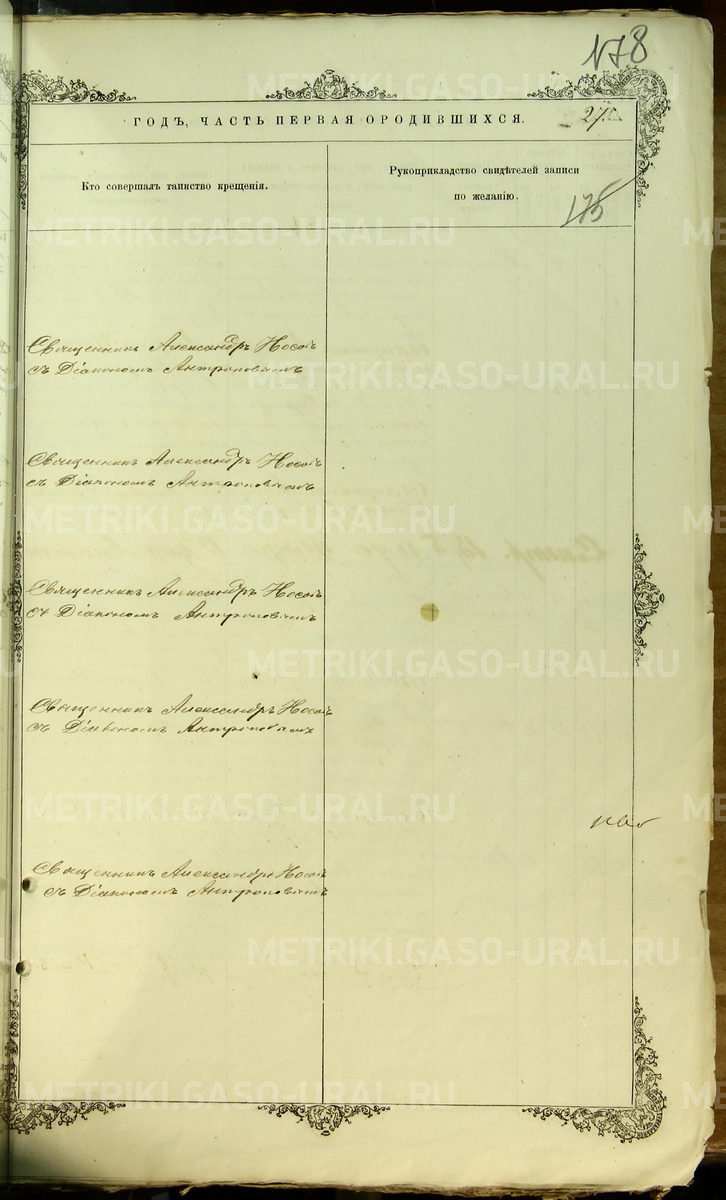 178
ГОДЪ, ЧАСТЬ ПЕРВАЯ О РОДИВШИХСЯ.
27
Кто совершалъ таинство крещенія.
Рукоприкладство свидѣтелей записи
по желанію.
175
Священникъ Александръ Носовъ
съ Діакономъ Антроповымъ
Священникъ Александръ Носовъ
съ Діакономъ Антроповымъ
Священникъ Александръ Носовъ
съ Діакономъ Антроповымъ
Священникъ Александръ Носовъ
съ Діакономъ Антроповымъ
Священникъ Александръ Носовъ
съ Діакономъ Антроповымъ
METRIKI.GASO-URAL.RU